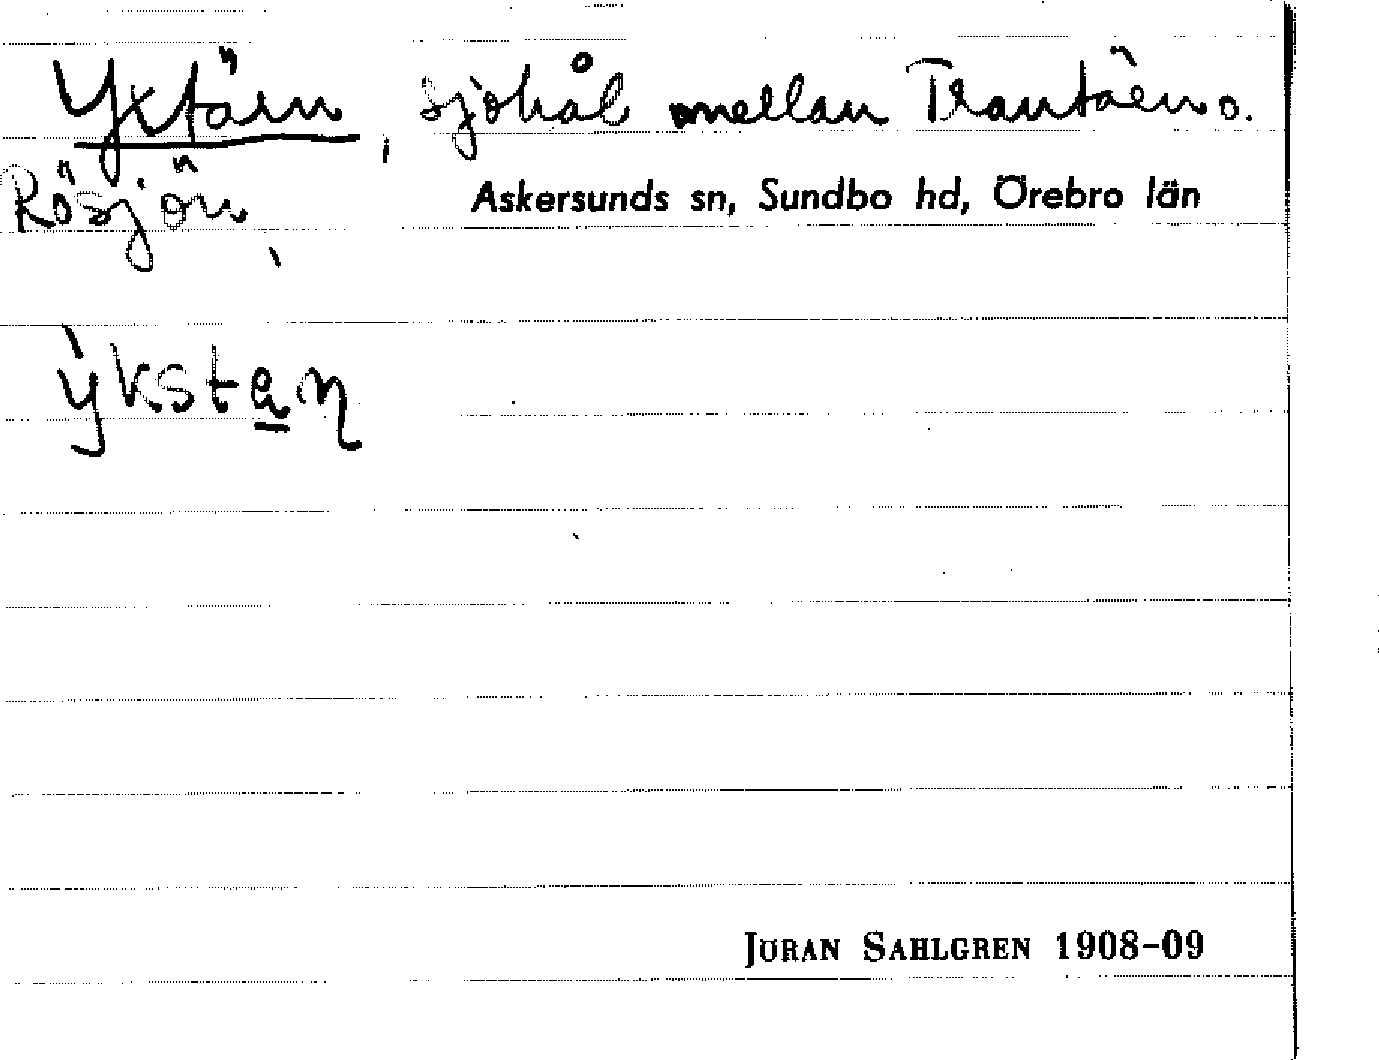 Yxtärn, sjöhål mellan Trantärn o.
Rösjön,
Askersunds sn, Sundbo hd, Örebro län
ỳkstan̡
JÖRAN SAHLGREN 1908-09